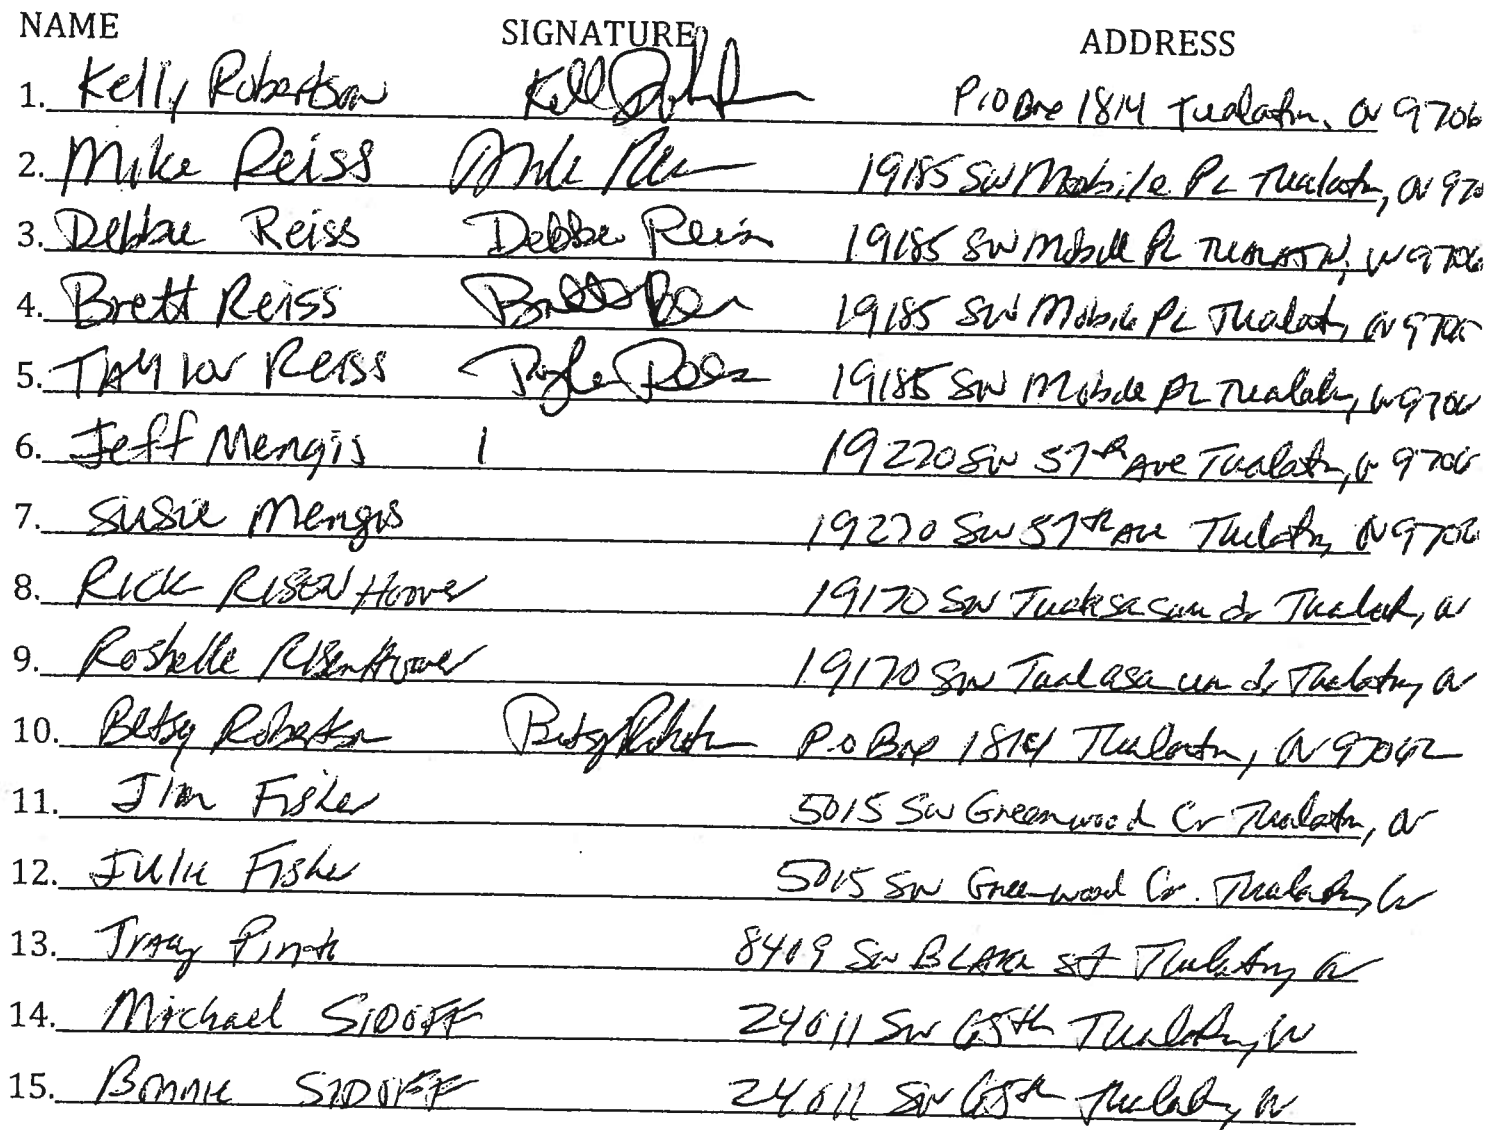 NAME SIGNATURE ADDRESS
1. Kelly Robertson P.O Box 1814 Tualatin, OR 9706
2. Mike Reiss Mike Reiss 19185 SW Mobile PL Tualatin, OR 970
3. Debbie Reiss Debbie Reiss 19185 SW Mobile PL TUALATIN, OR 9706
4. Brett Reiss Brett 19185 SW Mobile PL Tualatin, OR 9706
5. TAYlor Reiss Taylor Reiss 19185 SW Mobile PL Tualatin, OR 9706
6. Jeff Mengis 19270 SW 57th Ave Tualatin, OR 9706
7. Susie Mengis 19270 SW 57th Ave Tualatin, OR 9706
8. RICK RISENHoover 19170 SW dr Tualatin, OR
9. Roshelle RISENHoover 19170 SW dr Tualatin, OR
10. Betsy Robertson Betsy Robertson P.O Box 1814 Tualatin, OR 97062
11. Jim Fisher 5015 SW Greenwood Cr Tualatin, OR
12. Julie Fisher 5015 SW Greenwood Cr. Tualatin, OR
13. Tracy 8409 SW st Tualatin, OR
14. Michael SIDOFF 24011 SW 65th Tualatin, OR
15. Bonnie SIDOFF 24011 SW 65th Tualatin, OR